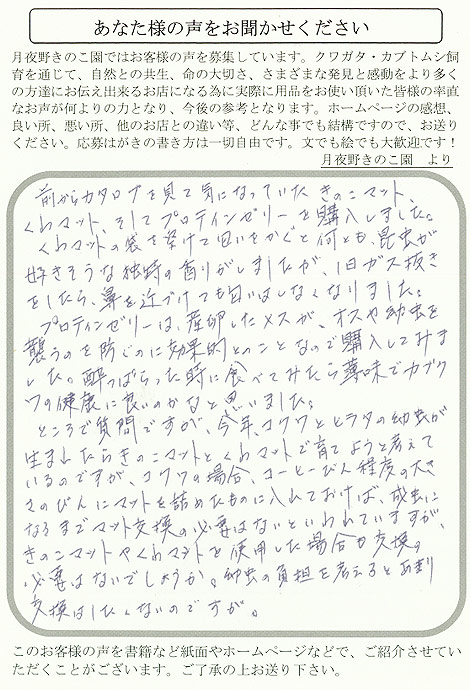 あなた様の声をお聞かせください
月夜野きのこ園ではお客様の声を募集しています。クワガタ・カブトムシ飼
育を通じて、自然との共生、命の大切さ、さまざまな発見と感動をより多く
の方達にお伝え出来るお店になる為に実際に用品をお使い頂いた皆様の率直
なお声が何よりの力となり、今後の参考となります。ホームページの感想、
良い所、悪い所、他のお店との違い等、どんな事でも結構ですので、お送り
ください。応募はがきの書き方は一切自由です。文でも絵でも大歓迎です！
月夜野きのこ園　より
前からカタログを見て気になっていたきのこマット、
くわマット、そしてプロテインゼリーを購入しました。
くわマットの袋を開けて匂いをかぐと何とも、昆虫が
好きそうな独特の香りがしましたが、1日ガス抜き
をしたら、鼻を近づけても匂いはしなくなりました。
プロテインゼリーは、産卵したメスが、オスや幼虫を
襲うのを防ぐのに効果的とのことなので購入してみま
した。酔っぱらった時に食べてみたら薄味でカブクワ
の健康に良いのかなと思いました。
ところで質問ですが、今年、コクワとヒラタの幼虫が
生まれたらきのこマットとくわマットで育てようと考えて
いるのですが、コクワの場合、コーヒーびん程度の大き
さのびんにマットを詰めたものに入れておけば、成虫に
なるまでマット交換の必要はないといわれていますが、
きのこマットやくわマットを使用した場合も交換の
必要はないでしょうか。幼虫の負担を考えるとあまり
交換はしたくないのですが。
このお客様の声を書籍など紙面やホームページなどで、ご紹介させてい
ただくことがございます。ご了承の上お送り下さい。